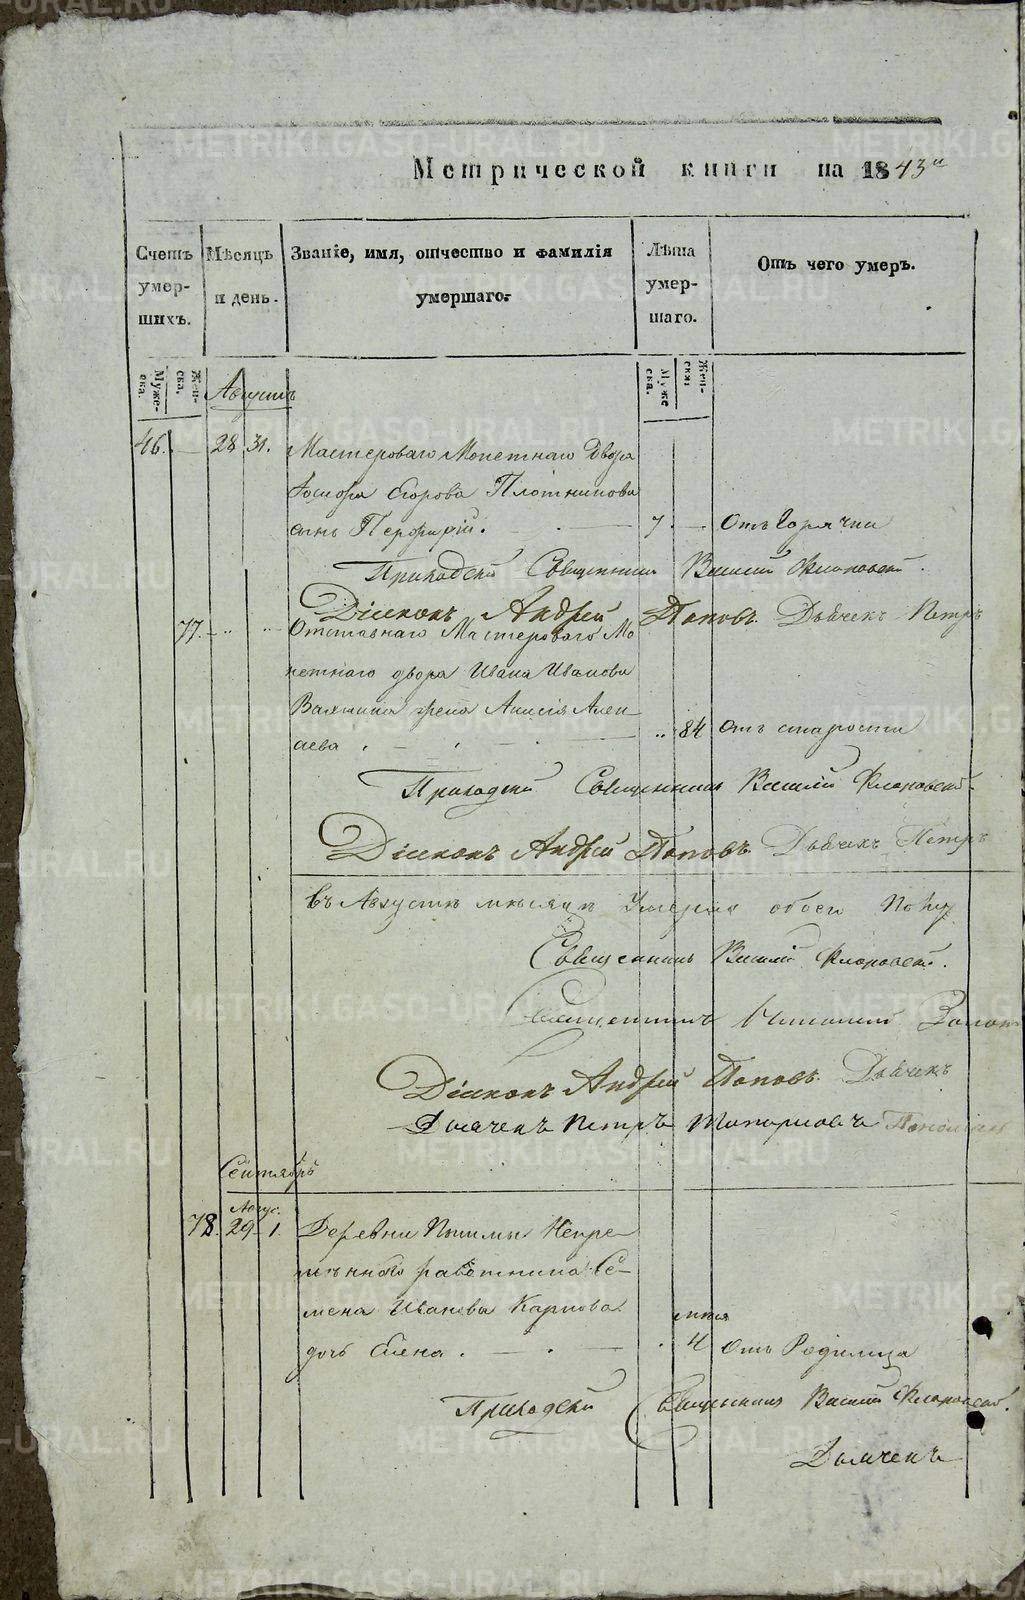 Метрической книги на 1843й
Счетъ умерших.
Мѣсяцъ и день.
Званіе, имя, отчество и фамилія умершаго.
Лѣта умершаго.
Отъ чего умеръ.
Муже-ска.
Жен-ска.
Муже ска.
Жен-ски
Августъ
46. — 28 31. Мастероваго Монетнаго Двора
Егорова Плотникова
сынъ Порфирій. — 7. — Отъ Горячки
Приходскій Священникъ Василій Флоровскій.
Діаконъ Андрей Поповъ. Дьячекъ Петръ
77. Отставнаго Мастероваго Мо
нетнаго двора Ивана Иванова
Вяткина жена Анисія Алек-
аева — 84 Отъ старости
Приходскій Священникъ Василій Флоровскій.
Діаконъ Андрей Поповъ. Дьячекъ Петръ
Въ Августѣ мѣсяцѣ Умерло обоего Полу
Священникъ Василій Флоровскій.
Священникъ
Діаконъ Андрей Поповъ. Дьячекъ
Дьячекъ Петръ Топорковъ Пономарь
Сентябрь
Авгус.
78. 29 1. Деревни Пышмы Непре-
мѣннаго работника Се-
мена Иванова Карпова
дочь Елена. — 4 Отъ Родимца
Приходскій Священникъ Василій Флоровскій.
Дьячекъ
METRIKI.GASO-URAL.RU